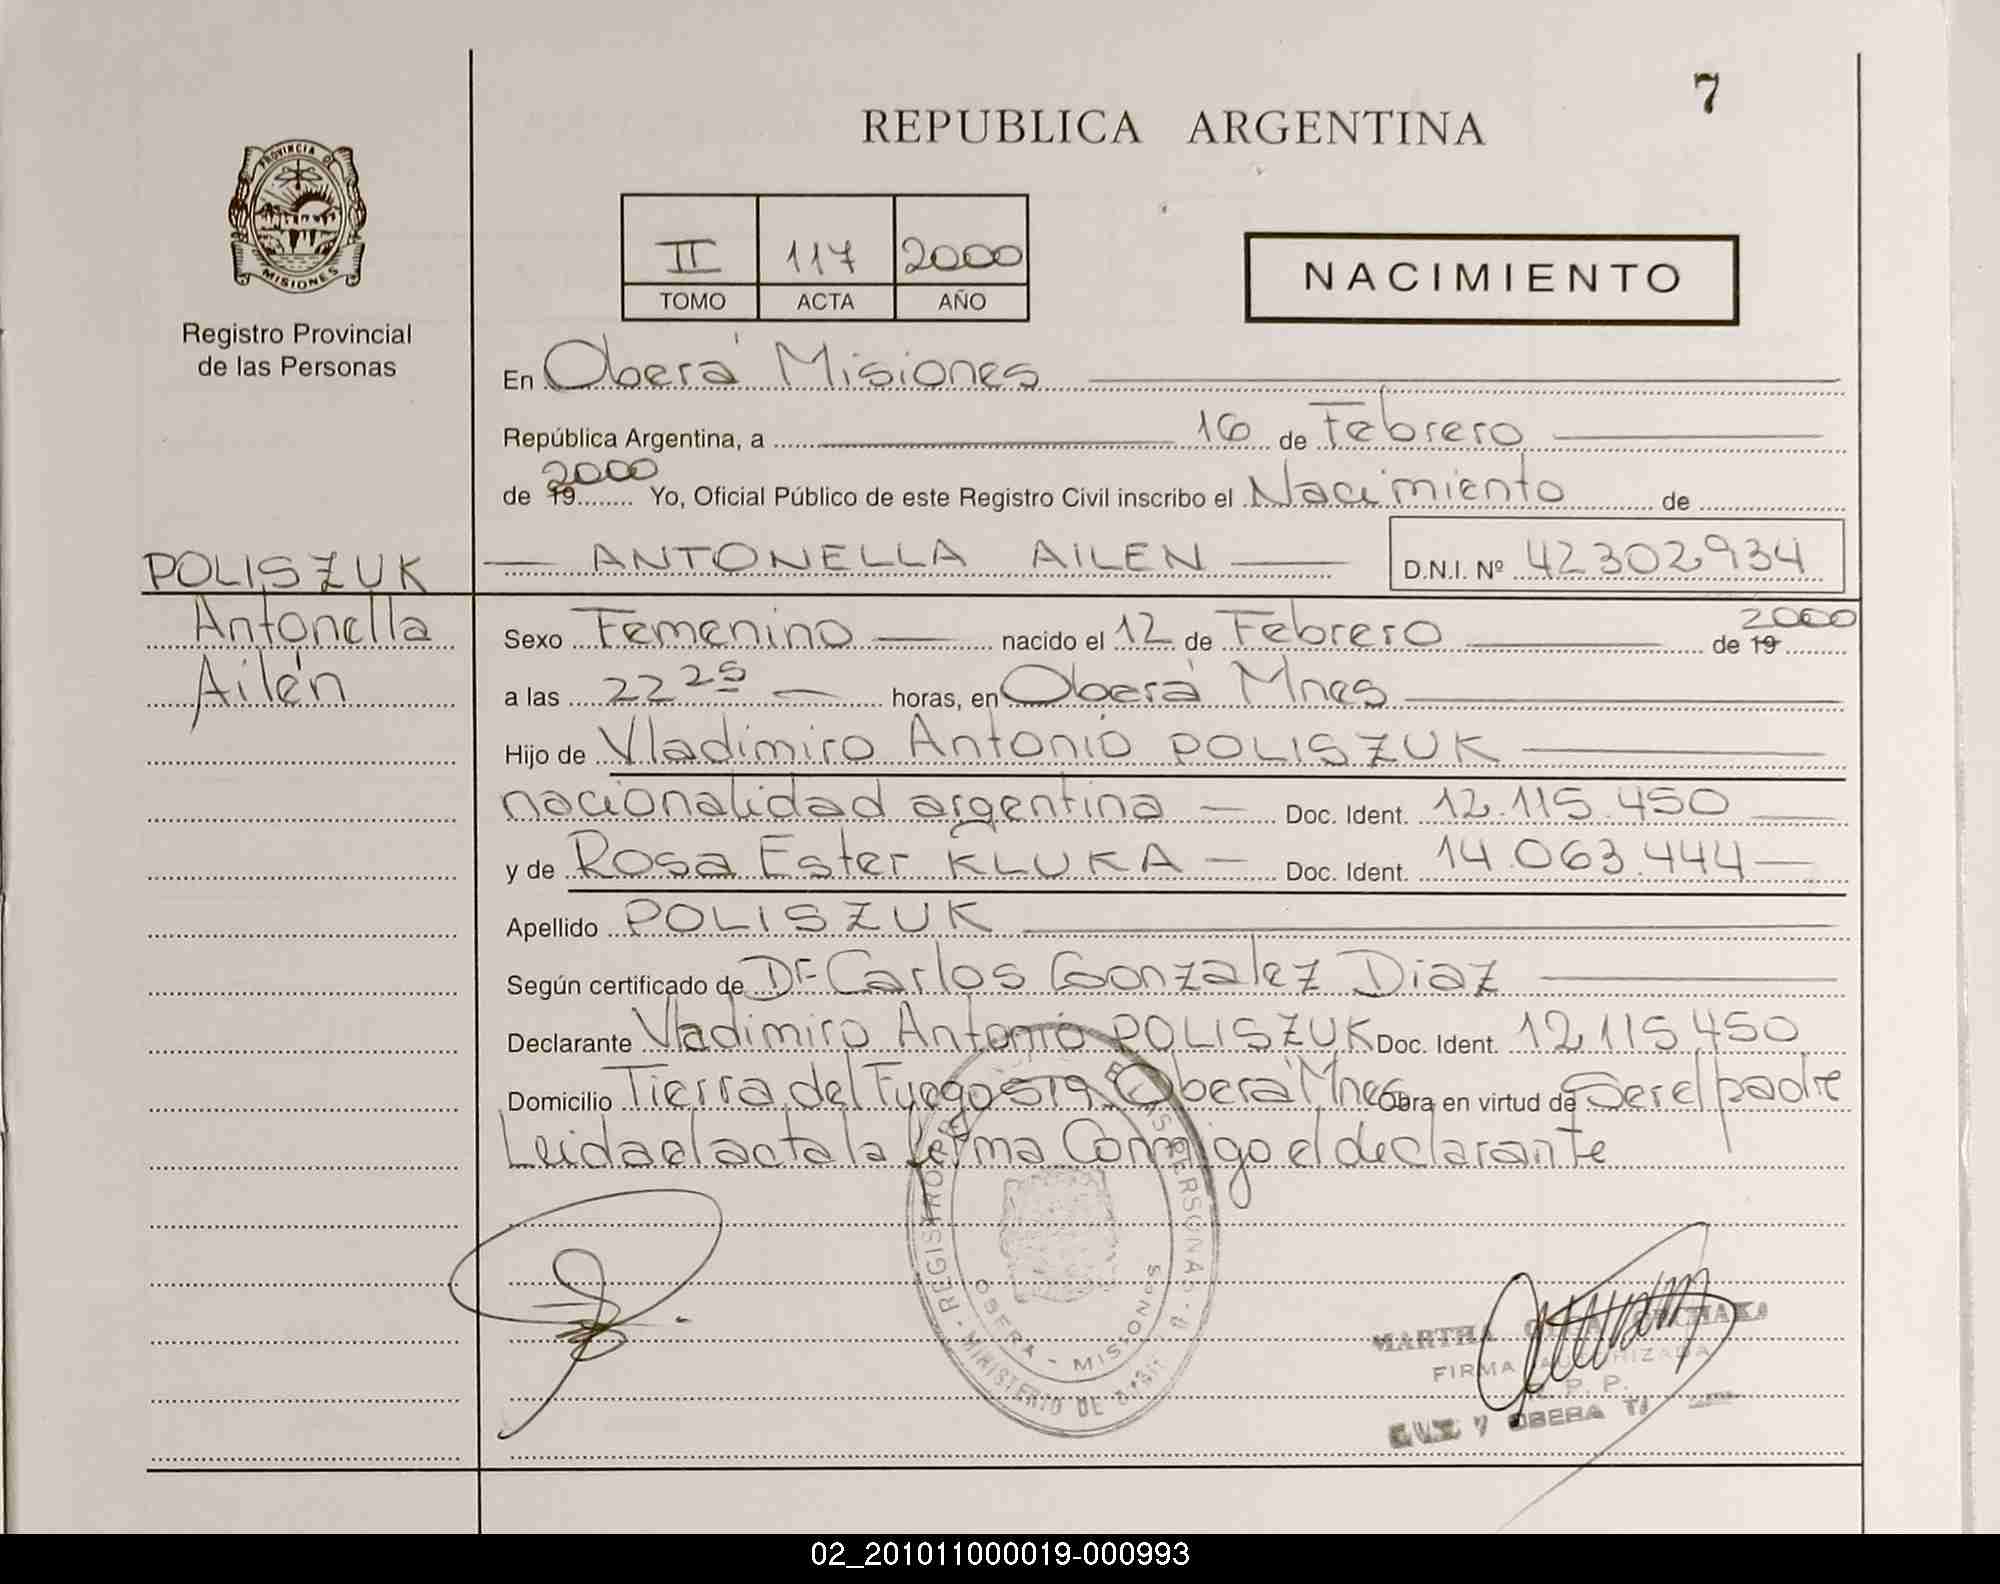 7
REPUBLICA ARGENTINA
PROVINCIA DE
MISIONES
Registro Provincial
de las Personas
II 117 2000
TOMO ACTA AÑO
NACIMIENTO
En Oberá Misiones
República Argentina, a 16 de Febrero
2000
de 19 Yo, Oficial Público de este Registro Civil inscribo el Nacimiento de
POLISZUK
Antonella
Ailén
ANTONELLA AILEN D.N.I. Nº 42302934
Sexo Femenino nacido el 12 de Febrero de 19 2000
a las 22 25 horas, en Oberá Mnes
Hijo de Vladimiro Antonio POLISZUK
nacionalidad argentina Doc. Ident. 12.115.450
y de Rosa Ester KLUKA Doc. Ident. 14.063.444
Apellido POLISZUK
Según certificado de Dr. Carlos Gonzalez Diaz
Declarante Vladimiro Antonio POLISZUK Doc. Ident. 12.115.450
Domicilio Tierra del Fuego 519 Oberá Mnes Obra en virtud de Ser el padre
Leida el acta la firma Conmigo el declarante
REGISTRO PERSONAS
OBERA - MISIONES
MINISTERIO DE
MARTHA
FIRMA AUTORIZADA
OBERA
02_201011000019-000993